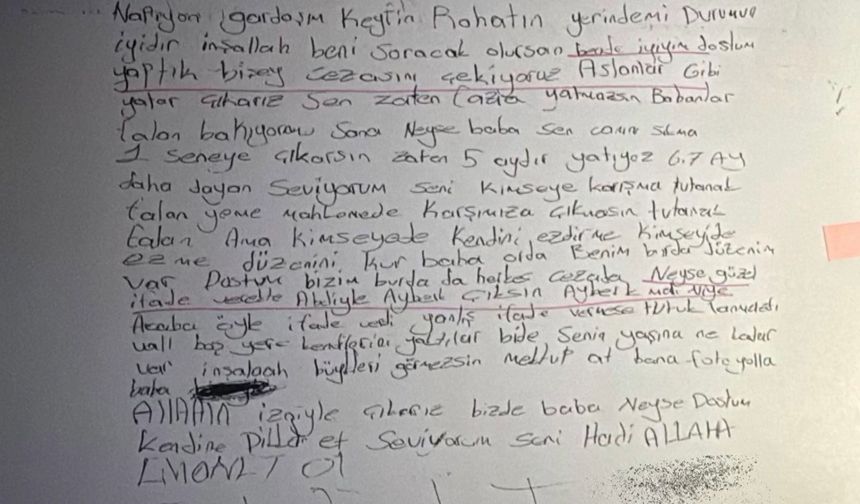 Napıyon gardaşım Keyfin Rahatın yerindemi Durumun
iyidir inşallah beni soracak olursan bende iyiyim dostum
yaptık bizey cezasını çekiyoruz Aslanlar Gibi
yatar çıkarız Sen zaten fazla yatmazsın Babanlar
falan bakıyorum Sana Neyse baba sen canını sıkma
1 Seneye çıkarsın zaten 5 aydır yatıyoz 6.7 AY
daha dayan Seviyorum Seni kimseye karışma tutanak
falan yeme mahkemede karşımıza çıkmasın tutanak
falan Ama kimseyede kendini ezdirme kimseyide
ezme düzenini kur baba orda Benim burda düzenim
var Dostum bizim burda da herkes cezada Neyse güzel
ifade Abdiyle Ayberk Çıksın Ayberk niye
Acaba öyle ifade verdi yanlış ifade vermese tutuk
boş yere yaktılar bide Senin yaşına ne kadar
var inşalaah görmezsin mektup at bana foto yolla
baba
AllAHın izniyle çıkarız bizde baba Neyse Dostum
kendine Dikkat et Seviyorum seni Hadi ALLAHA
EMANET Ol